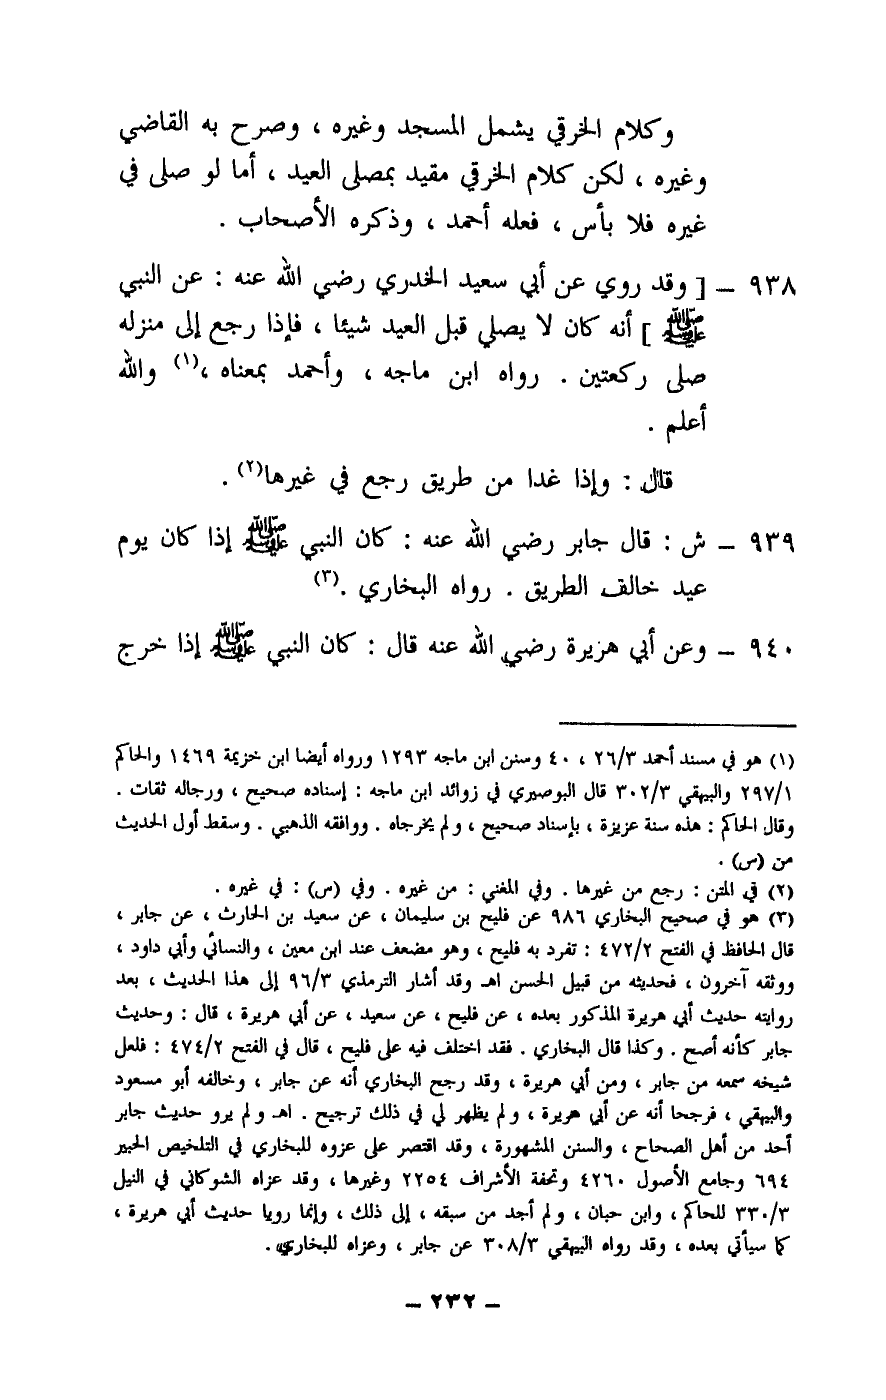 وكلام الخرقي يشمل المسجد وغيره ، وصرح به القاضي
وغيره ، لكن كلام الخرقي مقيد بمصلى العيد ، أما لو صلى في
غيره فلا بأس ، فعله أحمد ، وذكره الأصحاب .
٩٣٨ – [ وقد روي عن أبي سعيد الخدري رضي الله عنه : عن النبي
ﷺ ] أنه كان لا يصلي قبل العيد شيئا ، فإذا رجع إلى منزله
صلى ركعتين . رواه ابن ماجه ، وأحمد بمعناه ،(١) والله
أعلم .
قال : وإذا غدا من طريق رجع في غيرها(٢) .
٩٣٩ – ش : قال جابر رضي الله عنه : كان النبي ﷺ إذا كان يوم
عيد خالف الطريق . رواه البخاري .(٣)
٩٤٠ – وعن أبي هزيرة رضي الله عنه قال : كان النبي ﷺ إذا خرج
(١) هو في مسند أحمد ٢٦/٣ ، ٤٠ وسنن ابن ماجه ١٢٩٣ ورواه أيضا ابن خزيمة ١٤٦٩ والحاكم
٢٩٧/١ والبيهقي ٣٠٢/٣ قال البوصيري في زوائد ابن ماجه : إسناده صحيح ، ورجاله ثقات .
وقال الحاكم : هذه سنة عزيزة ، بإسناد صحيح ، ولم يخرجاه . ووافقه الذهبي . وسقط أول الحديث
من (س) .
(٢) في المتن : رجع من غيرها . وفي المغني : من غيره . وفي (س) : في غيره .
(٣) هو في صحيح البخاري ٩٨٦ عن فليح بن سليمان ، عن سعيد بن الحارث ، عن جابر ،
قال الحافظ في الفتح ٤٧٢/٢ : تفرد به فليح ، وهو مضعف عند ابن معين ، والنسائي وأبي داود ،
ووثقه آخرون ، فحديثه من قبيل الحسن اهـ وقد أشار الترمذي ٩٦/٣ إلى هذا الحديث ، بعد
روايته حديث أبي هريرة المذكور بعده ، عن فليح ، عن سعيد ، عن أبي هريرة ، قال : وحديث
جابر كأنه أصح . وكذا قال البخاري . فقد اختلف فيه على فليح ، قال في الفتح ٤٧٤/٢ : فلعل
شيخه سمعه من جابر ، ومن أبي هريرة ، وقد رجح البخاري أنه عن جابر ، وخالفه أبو مسعود
والبيهقي ، فرجحا أنه عن أبي هريرة ، ولم يظهر لي في ذلك ترجيح . اهـ ولم يرو حديث جابر
أحد من أهل الصحاح ، والسنن المشهورة ، وقد اقتصر على عزوه للبخاري في التلخيص الحبير
٦٩٤ وجامع الأصول ٤٢٦٠ وتحفة الأشراف ٢٢٥٤ وغيرها ، وقد عزاه الشوكاني في النيل
٣٣٠/٣ للحاكم ، وابن حبان ، ولم أجد من سبقه ، إلى ذلك ، وإنما رويا حديث أبي هريرة ،
كما سيأتي بعده ، وقد رواه البيهقي ٣٠٨/٣ عن جابر ، وعزاه للبخاري .
– ٢٣٢ –